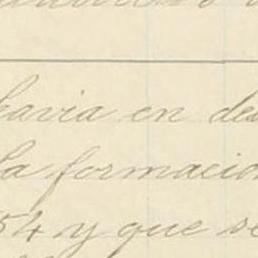 havia en des
la formacio
54 y que se